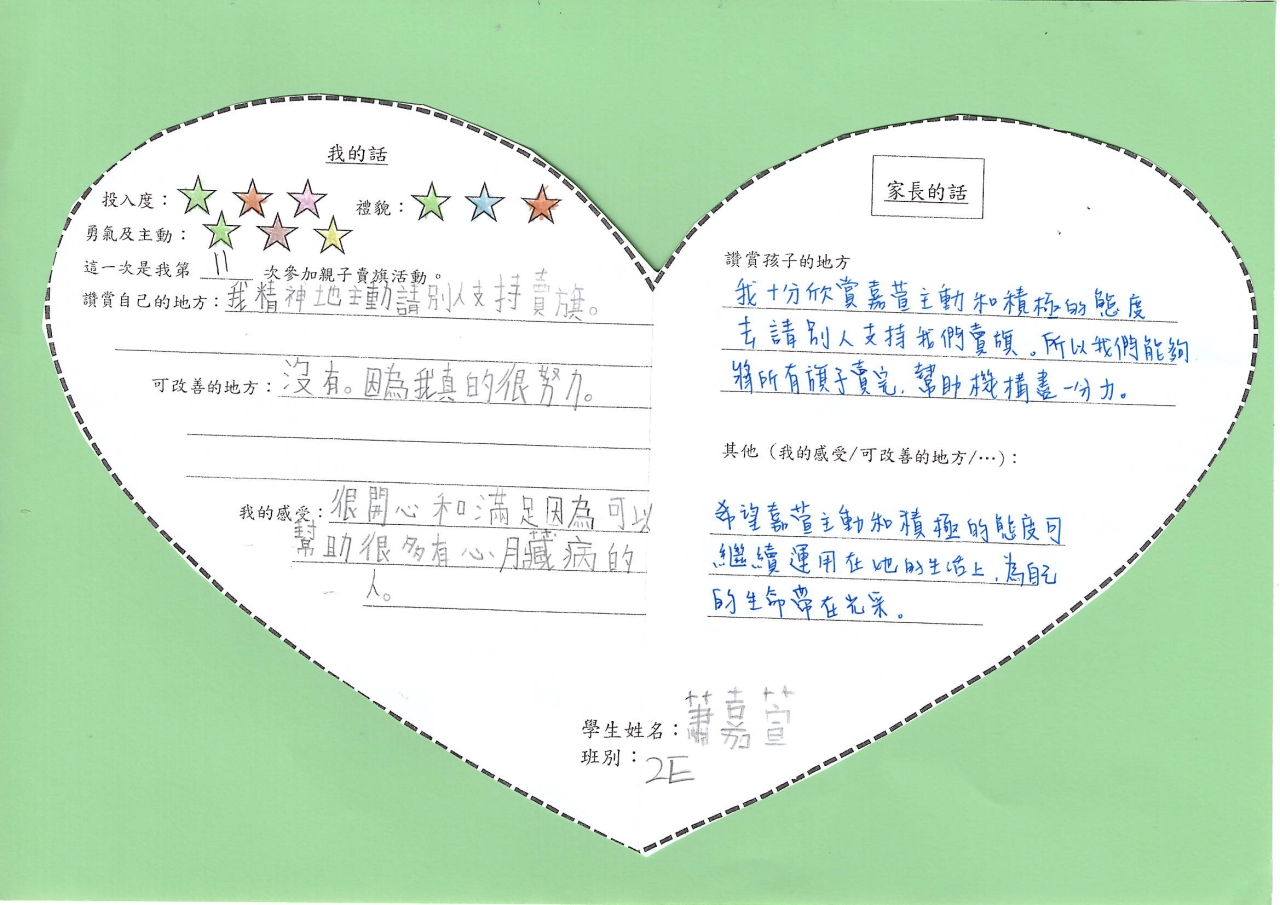 我的話
投入度：
禮貌：
勇氣及主動：
這一次是我第 11 次參加親子賣旗活動。
讚賞自己的地方：我精神地主動請別人支持賣旗。
可改善的地方：沒有。因為我真的很努力。
我的感受：很開心和滿足因為可以
幫助很多有心臟病的
人。
家長的話
讚賞孩子的地方
我十分欣賞嘉萱主動和積極的態度
去請別人支持我們賣旗。所以我們能夠
將所有旗子賣完，幫助機構盡一分力。
其他（我的感受/可改善的地方/…）：
希望嘉萱主動和積極的態度可
繼續運用在她的生活上，為自己
的生命帶在光采。
學生姓名：蕭嘉萱
班別：2E